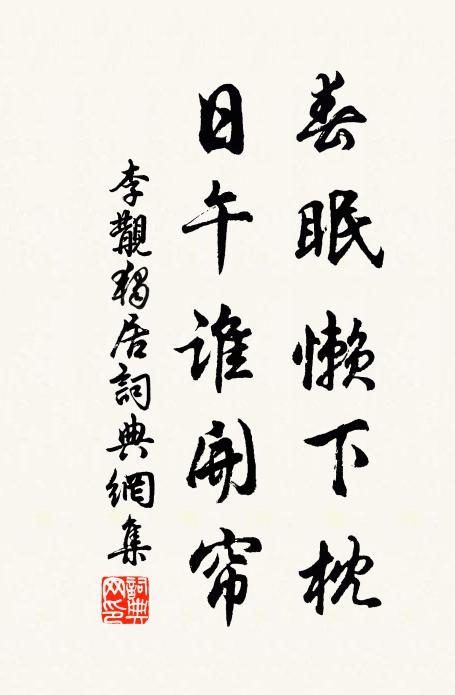 春眠懒下枕
日午谁開帘
李觏獨居詞典網集
詞典网印